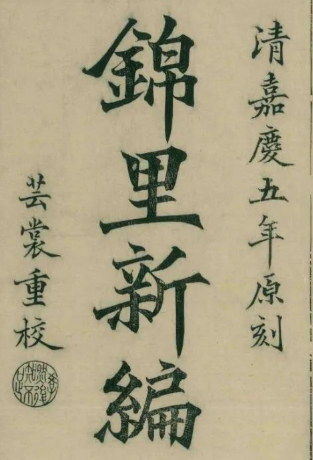 清嘉慶五年原刻
錦里新編
芸裳重校